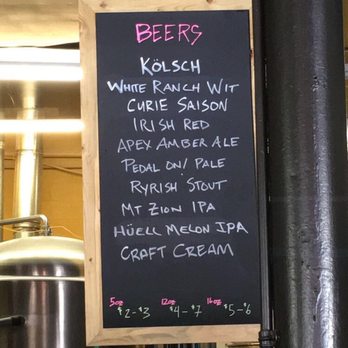 BEERS
KÖLSCH
WHITE RANCH WIT
CURIE SAISON
IRISH RED
APEX AMBER ALE
PEDAL ON/ PALE
RYRISH STOUT
MT ZION IPA
HÜELL MELON IPA
CRAFT CREAM
5oz 12oz 16oz
$2-$3 $4-$7 $5-$6